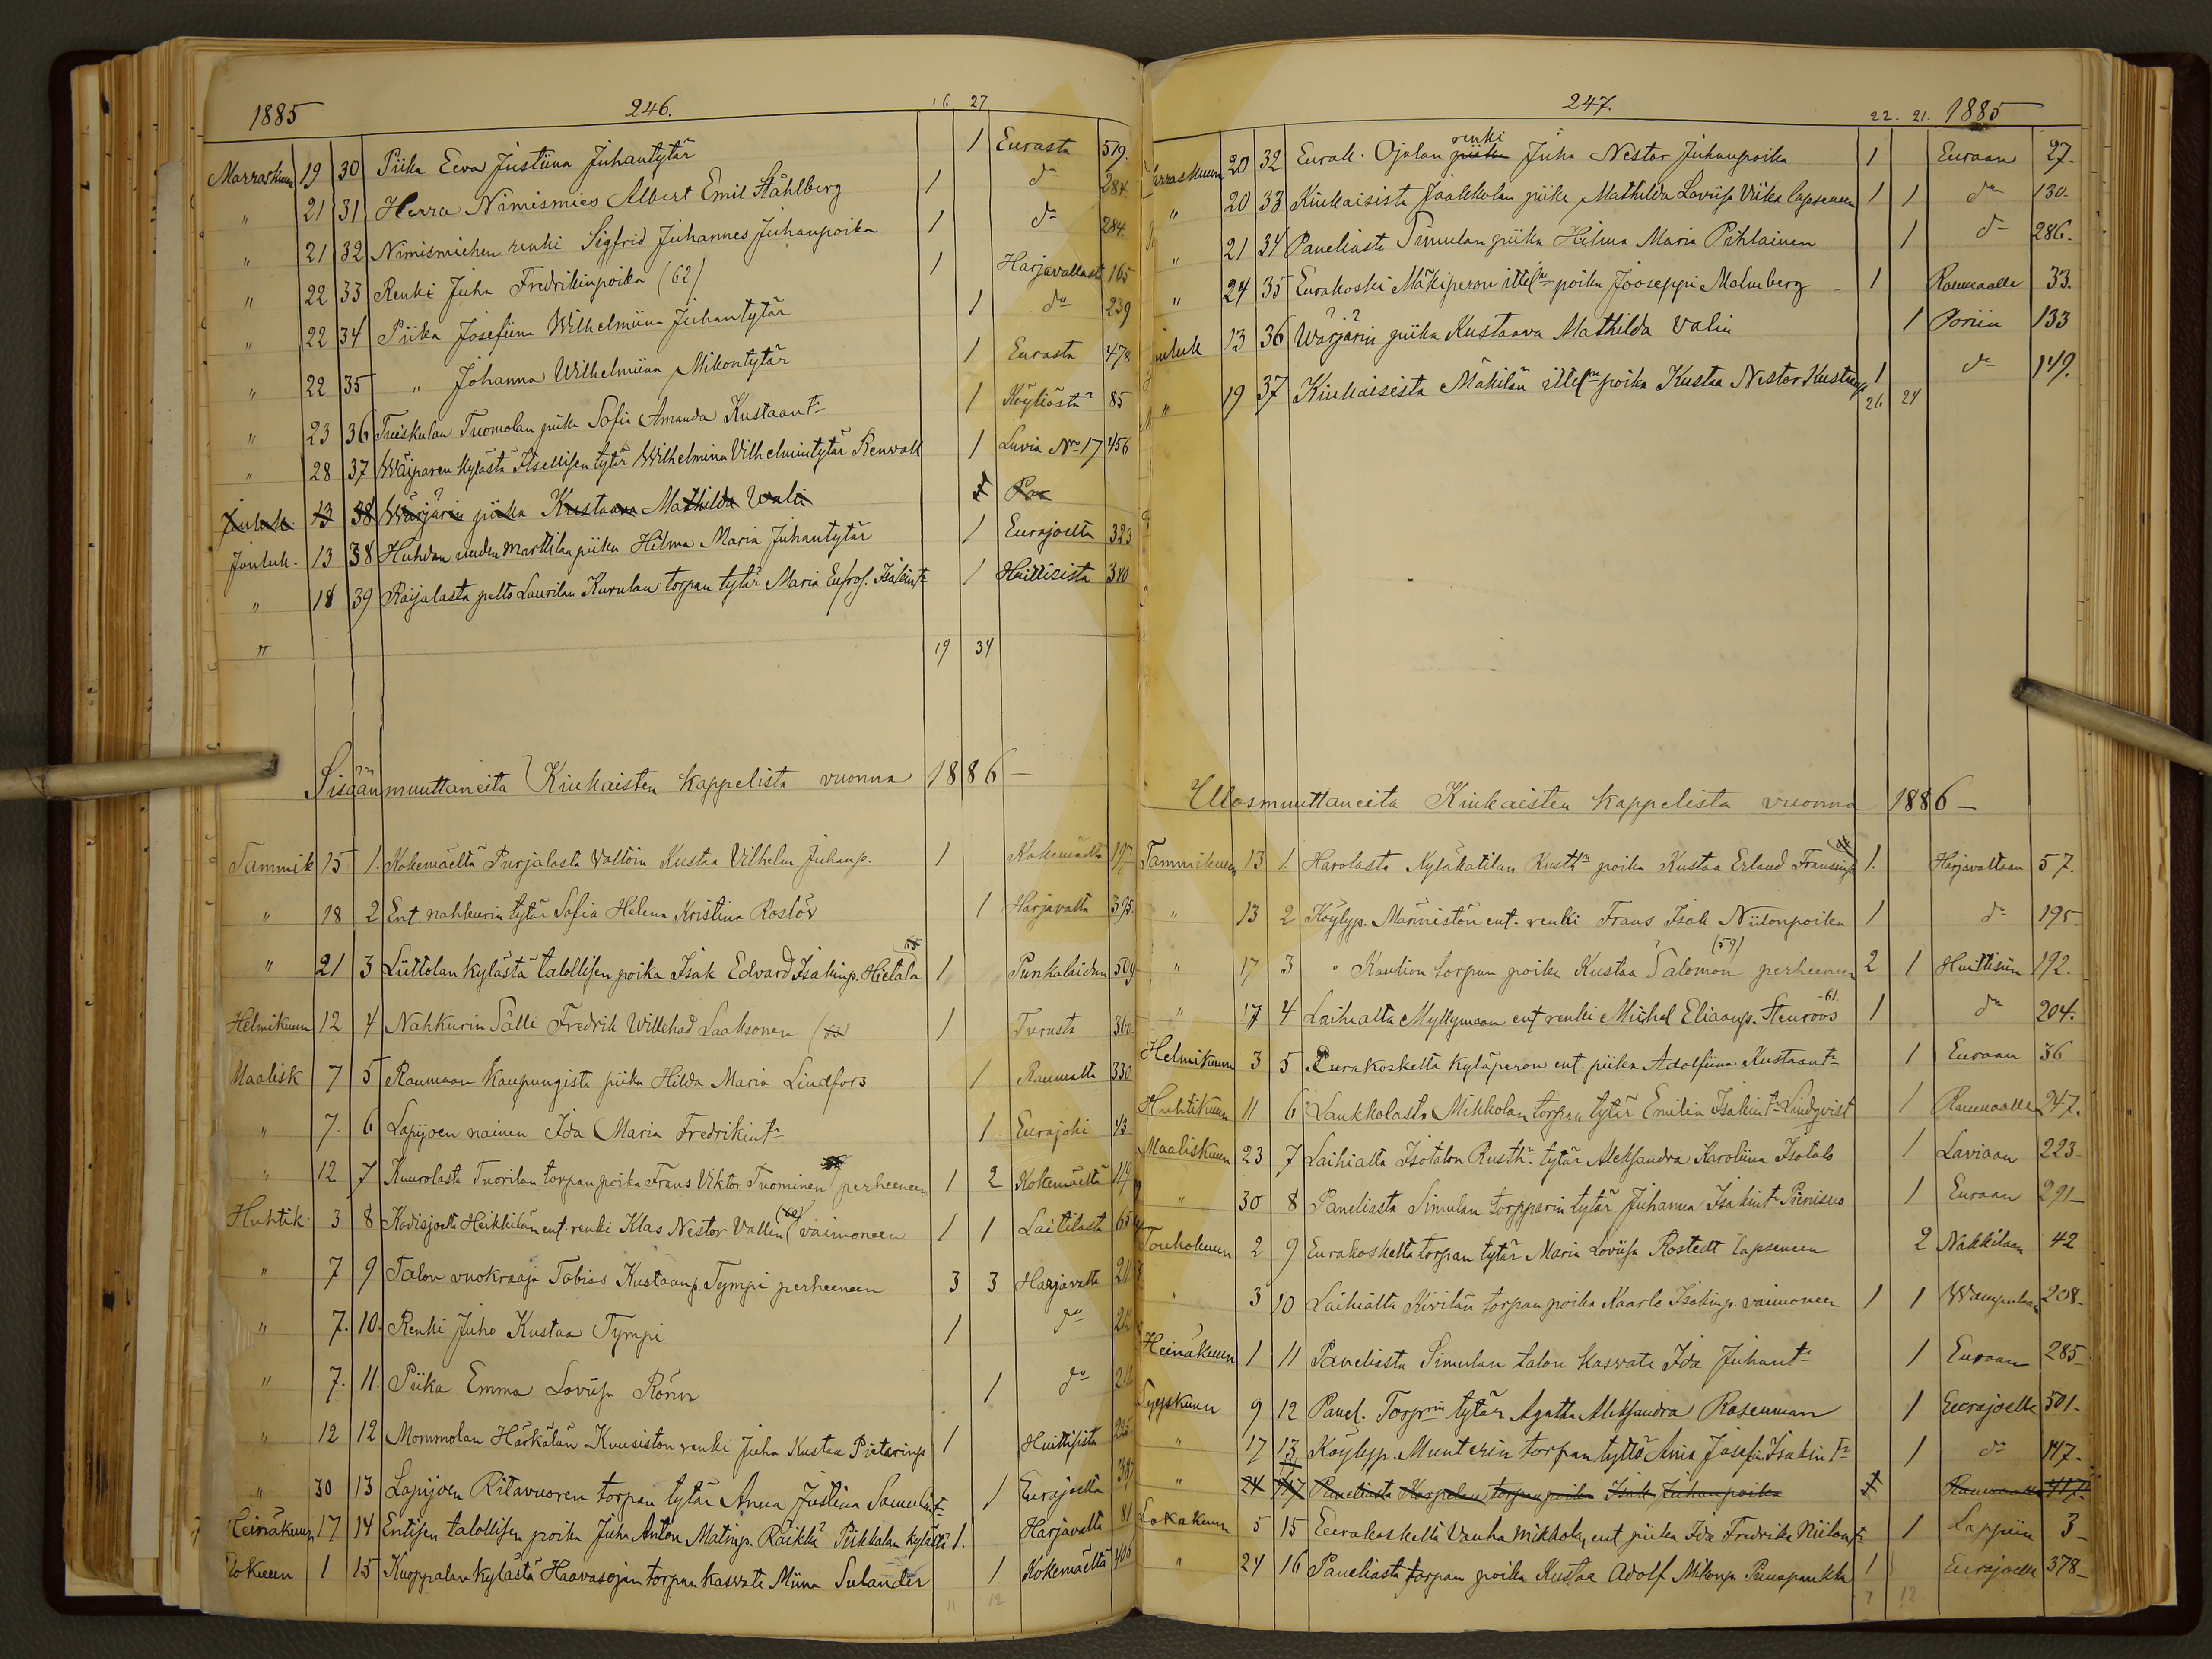 1885 246. 16. 27
Marraskuun 19 30 Piika Eeva Justiina Juhantytär 1 Eurasta 519.
" 21 31 Herra Nimismies Albert Emil Ståhlberg 1 do 284.
" 21 32 Nimismiehen renki Sigfrid Juhannes Juhanpoika 1 do 284.
" 22 33 Renki Juha Fredrikinpoika (62) 1 Harjavallast 165
" 22 34 Piika Josefiina Wilhelmiina Juhantytär 1 do 239
" 22 35 " Johanna Wilhelmiina Mikontytär 1 Eurasta 478
" 23 36 Tuiskulan Tuomolan piika Sofia Amanda Kustaant. 1 Köyliöstä 85
" 28 37 Wäiparen kylästä Itsellisen tytär Wilhelmina Vilhelmintytär Renvall 1 Luvia No 17 456
Jouluk. 13 38 Wärjärin piika Kustaava Mathilda Vali 1 Por
Jouluk. 13 38 Huhdan uuden Marttilan piika Hilma Maria Juhantytär 1 Eurajoelta 323
" 18 39 Raijalasta pelto Laurilan Kurulan torpan tytär Maria Eufros. Isakint. 1 Huittisista 340
" 19 34
Sisäänmuuttaneita Kiukaisten kappelista vuonna 1886 —
Tammik 15 1. Kokemäeltä Purjalasta Valtoin Kustaa Vilhelm Juhanp. 1 Kokemäeltä 197
" 18 2 Ent. nahkurin tytär Sofia Helena Kristina Roslöv 1 Harjavalta 395.
" 21 3 Liittolan kylästä talollisen poika Isak Edvard Isakinp. Hietala 1 Punkalaidun 509
Helmikuun 12 4 Nahkurin Sälli Fredrik Willehad Laaksonen 1 Turusta 360
Maalisk 7 5 Rauman kaupungista piika Hilda Maria Lindfors 1 Raumalta 330
" 7. 6 Lapijoen nainen Ida Maria Fredrikint. 1 Eurajoki 43
" 12 7 Kuurolasta Tuorilan torpan poika Frans Viktor Tuominen perheeneen 1 2 Kokemäeltä 114
Huhtik. 3 8 Kodisjoelta Heikkilän ent. renki Klas Nestor Vallin vaimoneen 1 1 Laitilasta 65
" 7 9 Talon vuokraaja Tobias Kustaanp. Tympi perheeneen 3 3 Harjavalta 211
" 7. 10. Renki Juho Kustaa Tympi 1 do
" 7. 11. Piika Emma Loviisa Rönn 1 do
" 12 12 Mommolan Härkälän Kuusiston renki Juha Kustaa Pietarinp 1 Huittisista 235
" 30 13 Lapijoen Ritavuoren torpan tytär Anna Justiina Samulint. 1 Eurajoelta 387
Heinäkuun 17 14 Entisen talollisen poika Juha Anton Matinp. Räikkä Pirkkalan kylästä 1. Harjavalta 81
Elokuun 1 15 Kuoppalan kylästä Haavasojan torpan kasvate Miina Sulander 1 Kokemäeltä 406
11 12
247. 22. 21. 1885
Marraskuun 20 32 Eurak. Ojalan piika renki Juha Nestor Juhanpoika 1 Euraan 27.
" 20 33 Kiukaisista Jaakkolan piika Mathilda Loviisa Viika lapseneen 1 1 do 130.
" 21 34 Paneliasta Simulan piika Hilma Maria Pihlainen 1 do 286.
" 24 35 Eurakoski Mäkiperon ittel. poika Jooseppi Malmberg 1 Raumalle 33.
Jouluk 13 36 Wärjärin piika Kustaava Mathilda Valin 1 Poriin 133
" 19 37 Kiukaisista Mäkilän ittel. poika Kustaa Nestor Kustaap. 1 do 149.
26 24
Ulosmuuttaneita Kiukaisten kappelista vuonna 1886 —
Tammikuun 13 1. Harolasta Kyläkatilan Rusth. poika Kustaa Erland Fransinp. 1. Harjavaltaan 57.
" 13 2 Köylyp. Männistön ent. renki Frans Isak Niilonpoika 1 do 195-
" 17 3 " Kaution torpan poika Kustaa Salomon (59) perheeneen 2 1 Huittisiin 192.
" 17 4 Laihialta Myllymaan ent renki Michel Eliaanp. Stenroos -61. 1 do 204.
Helmikuun 3 5 Eurakoskelta kyläperon ent. piika Adolfiina Kustaant. 1 Euraan 36
Huhtikuun 11 6 Laukkolasta Mikkolan torpan tytär Emilia Isakint. Lindqvist 1 Raumalle 247.
Maaliskuun 23 7 Laihialta Isotalon Rusth. tytär Aleksandra Karoliina Isotalo 1 Laviaan 223-
" 30 8 Paneliasta Simulan torpparin tytär Juhanna Isakint. Pienisuo 1 Euraan 291-
Toukokuun 2 9 Eurakoskelta torpan tytär Maria Loviisa Rostedt lapseneen 2 Nakkilaan 42
" 3 10 Laihialta Kivilän torpan poika Kaarlo Isakinp. vaimoneen 1 1 Wampulaan 208-
Heinäkuun 1 11 Paneliasta Simulan talon kasvate Ida Juhant. 1 Euraan 285-
Syyskuun 9 12 Panel. Torprin tytär Agatha Aleksandra Rosenman 1 Eurajoelle 501-
" 17 13 Köylyp. Munterin torpan tyttö Ania Josefa Isakint. 1 do 147.
" 24 14 Paneliasta Karpelan torpan poika Isak Juhanpoika 1 Raumalle 417
Lokakuun 5 15 Eurakoskelta Vanha Mikkolan ent piika Ida Fredrika Niilont. 1 Lappiin 3-
" 24 16 Paneliasta torpan poika Kustaa Adolf Mikonp. Punapaukka 1 Eurajoelle 378-
7 12